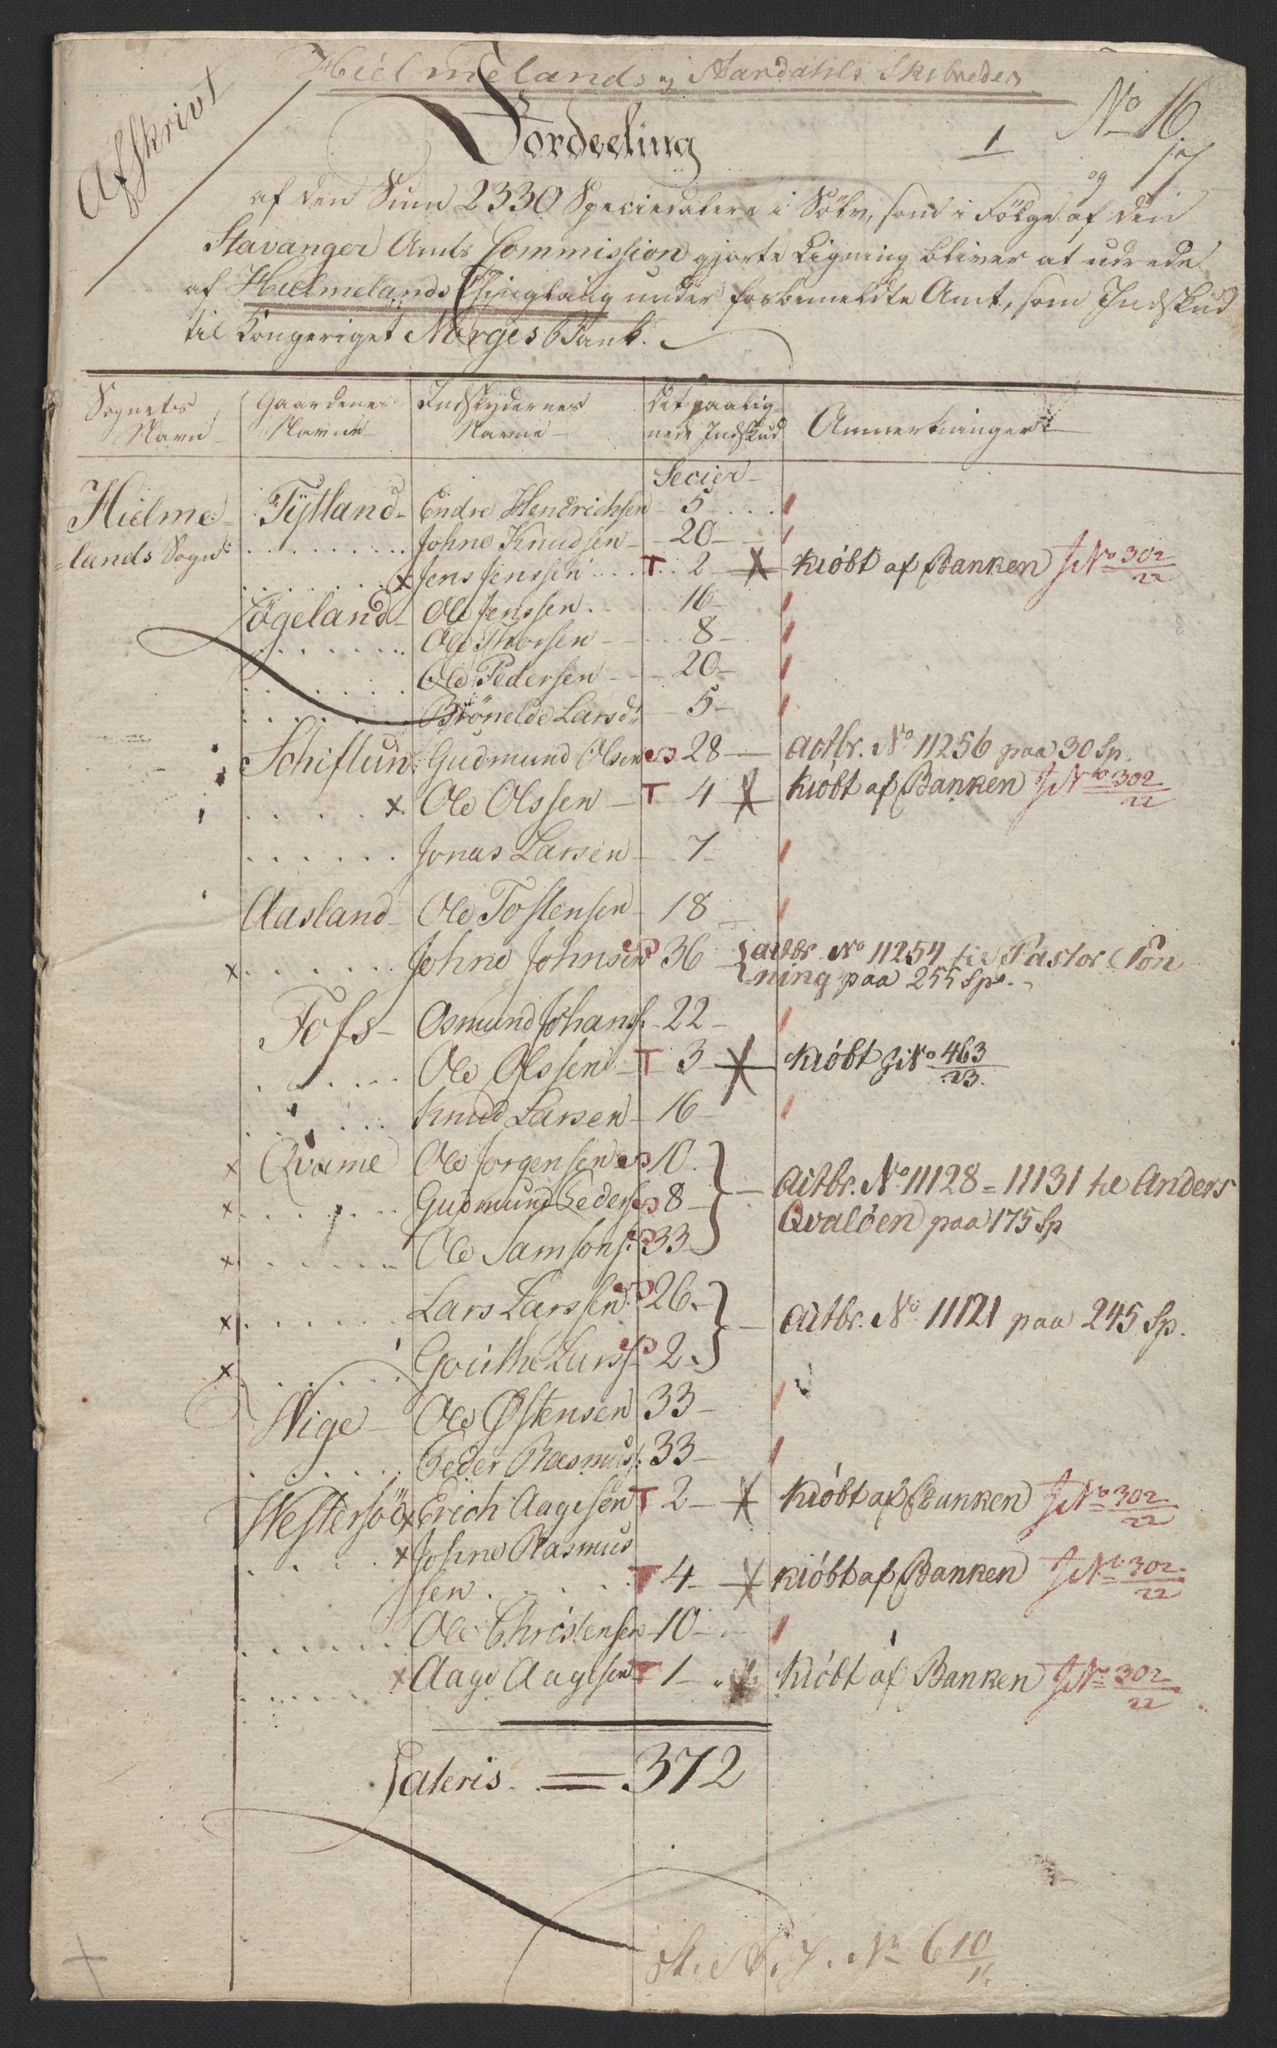 Hielmelands og Aardahls Skibreder
Afskrivt
No 16
og 17
1
Fordeeling
af den Sum 2330 Speciedalere i Sölv, som i Fölge af den
Stavanger Amts Commission gjorte Ligning bliver at udrede
af Hielmelands Thinglaug under forbemeldte Amt, som Indskud
til Kongeriget Norges Bank.
Sognets Navn Gaardenes Navne Indskydernes Navne Det paalignede Indskud Anmerkninger
Secier
Hielme- Tÿtland Endre Hendrichsen 5
lands Sogn Johne Knudsen 20
x Jens Jenssen T 2 kiöbt af Banken J No 302/22
Ole Jenssen 16
Ole Thorsen 8
Ole Pedersen 20
Brönelde Larsdr 5
Schiflun Gudmund Olsen 28 actbr. No 11256 paa 30 Sp.
x Ole Olssen T 4 kiöbt af Banken J No 302/22
Jonas Larsen 7
Aasland Ole Tostensen 18
x Johne Johnsen 36 actbr No 11254 til Pastor Pön
ning paa 255 Sp.
Fofs Osmund Johans. 22
Ole Olssen T 3 kiöbt J No 463/23.
Knud Larsen 16
x Qvame Ole Jorgensen 10
x Gudmund Peders 8 actbr. No 11128 = 11131 til Anders
x Ole Samsons. 33 Qvalöen paa 175 Sp
x Lars Larssen 26 actbr. No 11121 paa 245 Sp.
x Goüthe Larss 2
Wige Ole Östensen 33
Peder Rasmuss. 33
Westersöe x Erich Aagesen T 2 kiöbt af Banken J No 302/22
x Johne Rasmus
sen T 4 kiöbt af Banken J No 302/22
Ole Christensen 10
x Aage Aagesen T 1 kiöbt af Banken J No 302/22
Lateris = 372
No 610